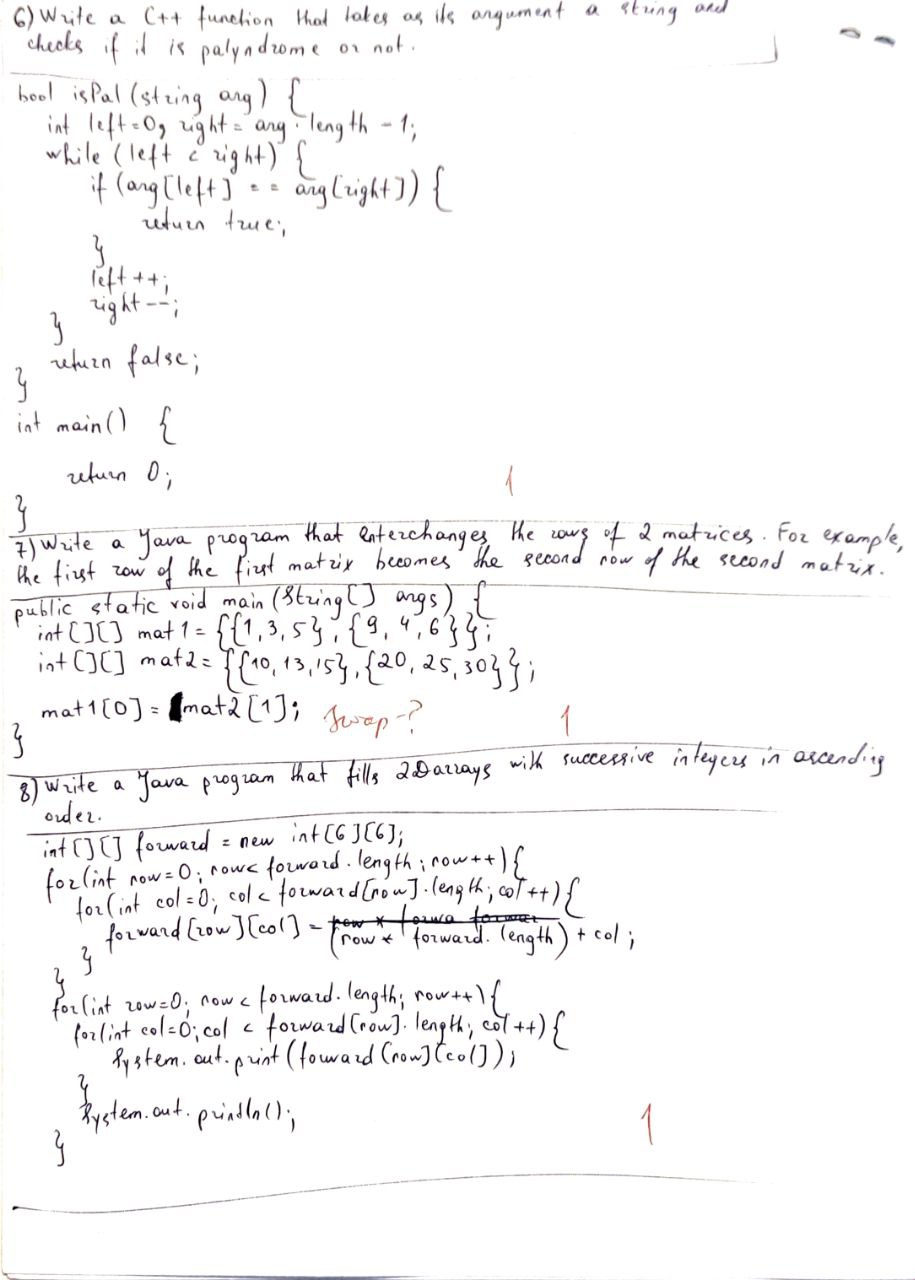 6) Write a C++ function that takes as its argument a string and
checks if it is palyndrome or not.
bool isPal (string arg) {
int left=0, right = arg.length - 1;
while (left < right) {
if (arg[left] == arg[right]) {
return true;
}
left ++;
right --;
}
return false;
}
int main() {
return 0;
}
1
7) Write a Java program that enterchanges the rows of 2 matrices. For example,
the first row of the first matrix becomes the second row of the second matrix.
public static void main (String[] args) {
int [][] mat1 = {{1,3,5}, {9, 4, 6}};
int [][] mat2 = {{10, 13, 15}, {20, 25, 30}};
mat1[0] = mat2[1]; Swap-? 1
}
8) Write a Java program that fills 2D arrays with successive integers in ascending
order.
int [][] forward = new int [6][6];
for (int row=0; row< forward.length; row++) {
for (int col=0; col< forward[row].length; col++) {
forward [row][col] = row * forwa forwar
(row * forward.length) + col;
}
}
for (int row=0; row < forward.length; row++) {
for (int col=0; col < forward[row].length; col++) {
System.out.print (forward [row][col]);
}
System.out.println();
}
1